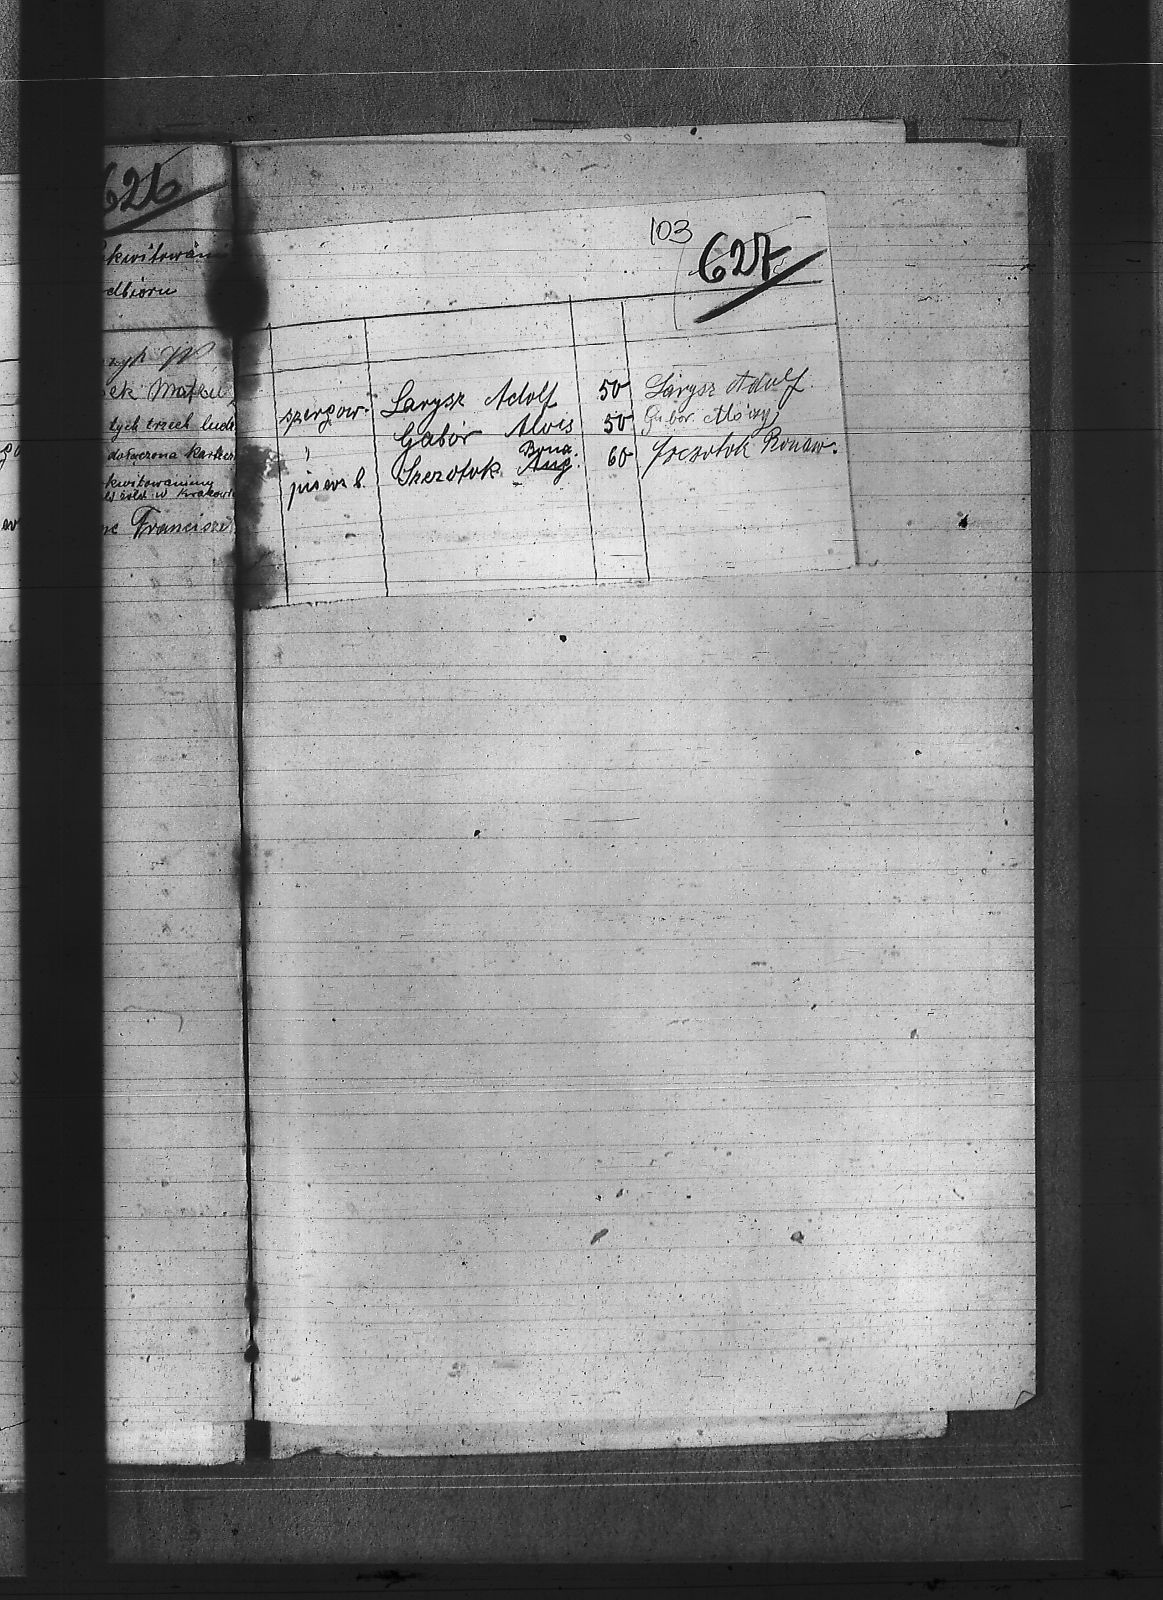 626
kwitowani
dbioru
ek Mateu
tych trzech ludz
dołączona karteczk
kwitowaniamy
w Krakowie
Francisze
103
627
szergow. Larysz Adolf 50 Larysz Adolf.
" Gabór Alois 50 Gabor Alojzy
Bona.
pionr b. Szezotok Aug. 60 Szczotok Bonaw.